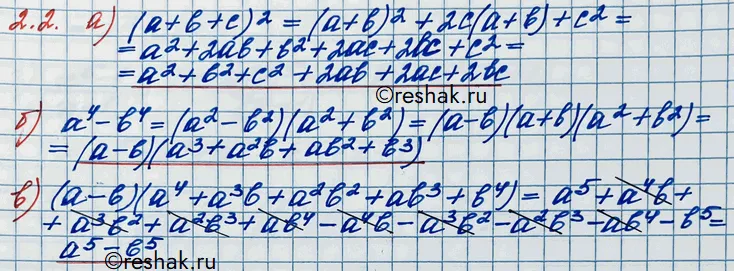 2.2. а) (a+b+c)² = (a+b)² + 2c(a+b) + c² =
= a² + 2ab + b² + 2ac + 2bc + c² =
= a² + b² + c² + 2ab + 2ac + 2bc
©reshak.ru
б) a⁴ - b⁴ = (a² - b²)(a² + b²) = (a-b)(a+b)(a² + b²) =
= (a-b)(a³ + a²b + ab² + b³)
в) (a-b)(a⁴ + a³b + a²b² + ab³ + b⁴) = a⁵ + a⁴b +
+ a³b² + a²b³ + ab⁴ - a⁴b - a³b² - a²b³ - ab⁴ - b⁵ =
a⁵ - b⁵
©reshak.ru